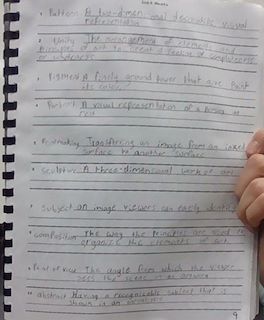 Pattern A two-dimensional decorative visual
representation
Unity The arrangement of elements and
principles of art to creat a feeling of completeness
or wholeness
Pigment A finely ground power that give paint
its color
Portrait A visual representation of a person at
rest
Printmaking Transferring an image from an inked
surface to another surface
Sculpture A three-dimensional work of art
Subject an image viewers can easily identify
composition The way the principles are used to
organize the elements of art.
Point of view The angle from which the viewer
sees the scene or an
abstract Having a recognizable subject that is
shown in an
9